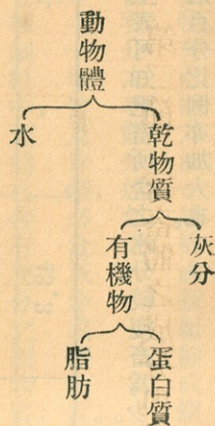 動物體
乾物質
水
灰分
有機物
蛋白質
脂肪